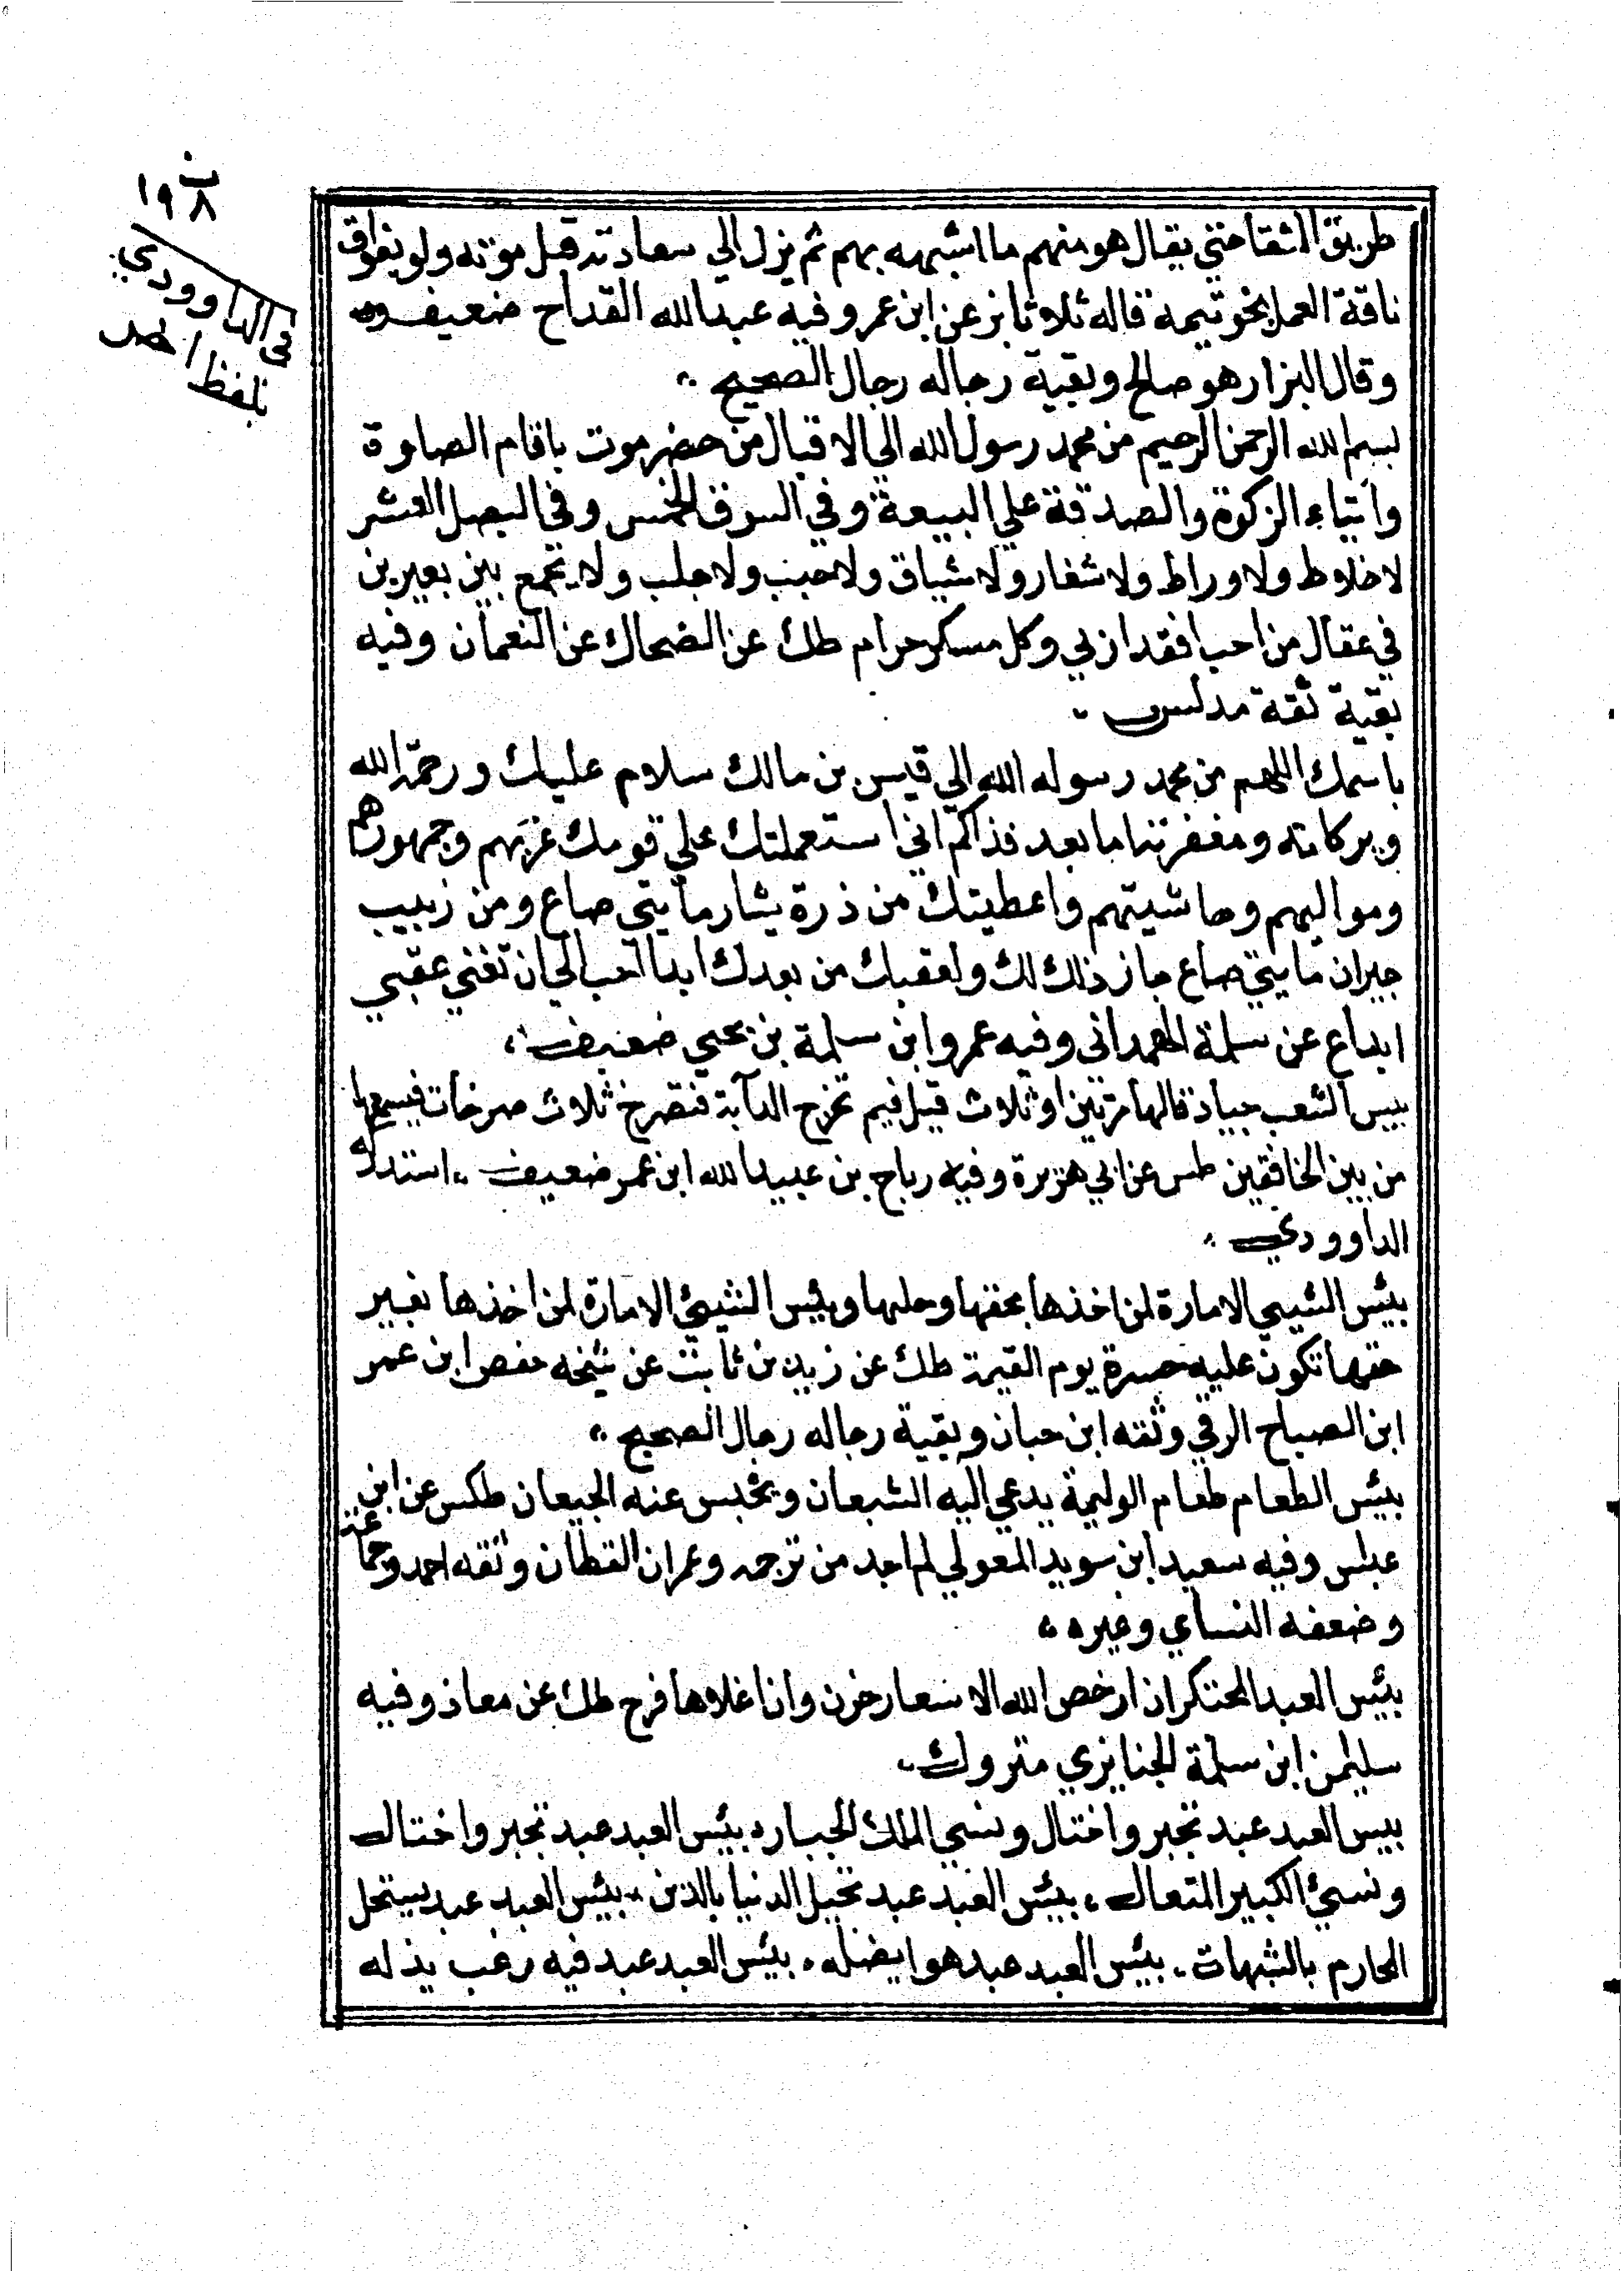 ١٩٨
في الداوودي
بلفظ
طريق الشقا حتي يقال هو منهم ما اشبهه بهم ثم يزل الي سعادته قبل موته ولو بفواق
ناقة العمل بخوتيمة قاله ثلاثا بز عن ابن عمر وفيه عبد الله القداح ضعيف
وقال البزار هو صالح وبقية رجاله رجال الصحيح
بسم الله الرحمن الرحيم من محمد رسول الله الي الاقيال من حضرموت باقام الصلوة
وايتاء الزكوة والصدقة علي البيعة وفي السوق الخمس وفي البصل العشر
لا خلاط ولا وراط ولا شغار ولا شياق ولا جنب ولا جلب ولا يجمع بين بعيرين
في عقال من احبا فقد اربي وكل مسكر حرام طك عن الضحاك عن النعمان وفيه
بقية ثقة مدلس
باسمك اللهم من محمد رسوله الله الي قيس بن مالك سلام عليك ورحمة الله
وبركاته ومغفرته اما بعد فذاكم اني استعملتك علي قومك عربهم وجمهورهم
ومواليهم وحاشيتهم واعطيتك من ذرة يشار مايتي صاع ومن زبيب
جيران مايتي صاع جاز ذلك لك ولعقبك من بعدك ابدا احب الي ان تغني عقبي
ابداع عن سلمة الهمداني وفيه عمرو ابن سلمة بن يحيي ضعيف
بيس الشعب جياد قالها مرتين او ثلاث قيل فيم تخرج الدآبة فتصرخ ثلاث صرخات فيسمعها
من بين الخافقين طس عن ابي هريرة وفيه رباح بن عبيد الله ابن عمر ضعيف استدله
الداوودي
بئيس الشيي الامارة لمن اخذها بحقها وحلها وبئيس الشيئ الامارة لمن اخذها بغير
حقها تكون عليه حسرة يوم القيمة طك عن زيد بن ثابت عن شيخه حفص ابن عمر
ابن الصباح الرقي وثقه ابن حبان وبقية رجاله رجال الصحيح
بيئس الطعام طعام الوليمة يدعي اليه الشبعان ويحبس عنه الجيعان طكس عن ابن
عباس وفيه سعيد ابن سويد المعولي لم اجد من ترجمه وعمران القطان وثقه احمد وجماعة
وضعفه النساي وغيره
بئيس العبد المحتكر ان ارخص الله الاسعار حزن وان اغلاها فرح طك عن معاذ وفيه
سليمن ابن سلمة الجنايزي متروك
بيس العبد عبد تجبر واختال ونسي الملك الجبار بيئس العبد عبد تجبر واختال
ونسيئ الكبير المتعال بيئس العبد عبد تخيل الدنيا بالدين بيئس العبد عبد يستحل
المحارم بالشبهات بيئس العبد عبد هوا يضله بيئس العبد عبد فيه رغب يذله